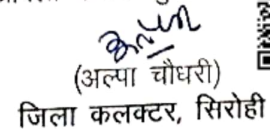 (अल्पा चौधरी)
जिला कलक्टर, सिरोही